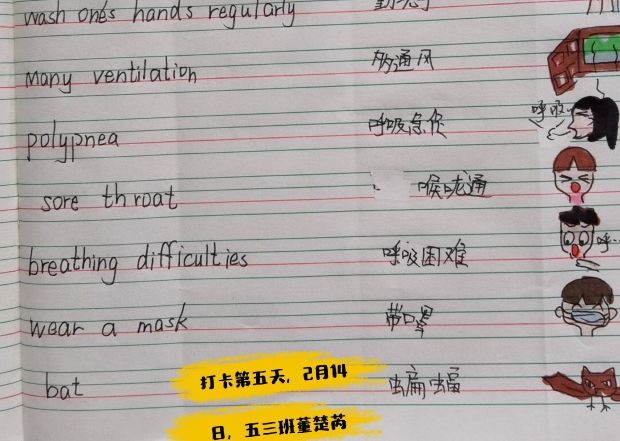 wash one's hands regularly
Many ventilation 多通风
polypnea 呼吸急促 呼吸
sore throat 喉咙通
breathing difficulties 呼吸困难 呼...
wear a mask 带口罩
bat 蝙蝠
打卡第五天，2月14
日，五三班董楚芮